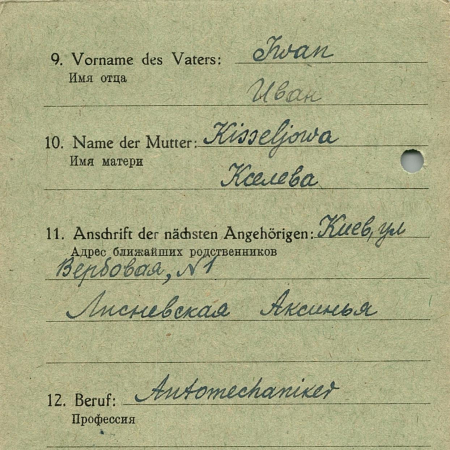 9. Vorname des Vaters: Iwan
Имя отца
Иван
10. Name der Mutter: Kisseljowa
Имя матери
Кселева
11. Anschrift der nächsten Angehörigen: Киев, ул
Адрес ближайших родственников
Вербовая, N1
Лисневская Аксинья
12. Beruf: Automechaniker
Профессия